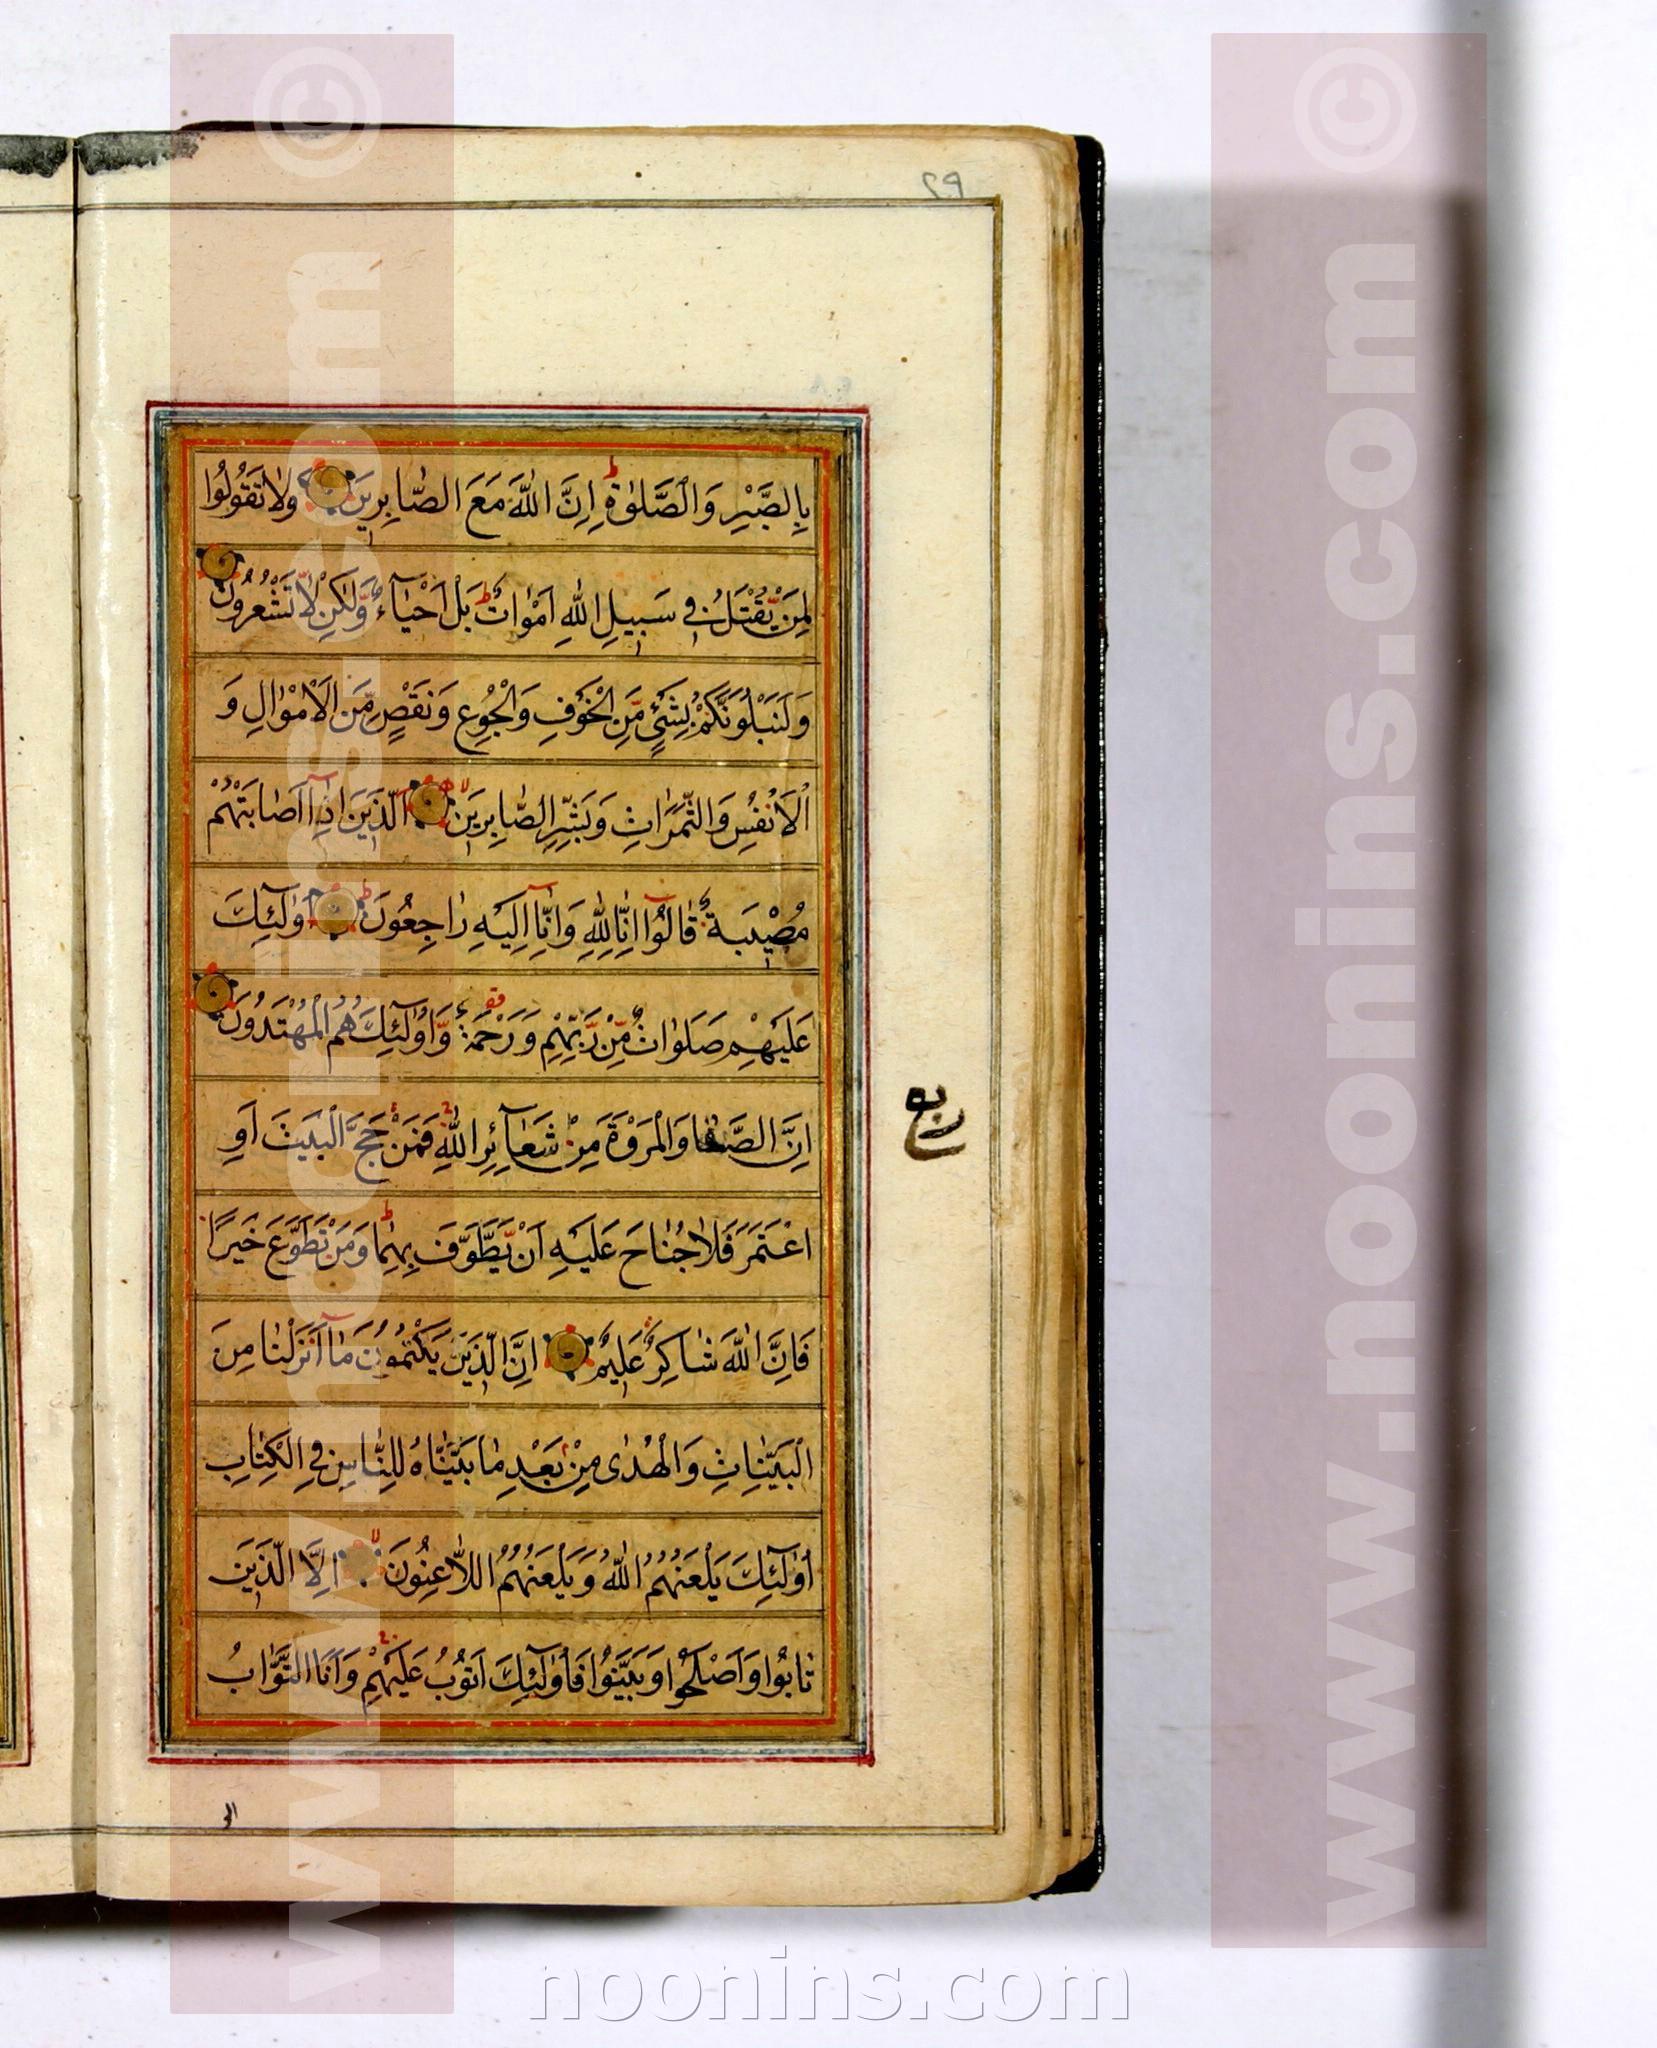 بِالصَّبْرِ وَالصَّلٰوةِ اِنَّ اللّٰهَ مَعَ الصّٰابِرِينَ وَلٰا تَقُولُوا
لِمَنْ يُقْتَلُ فِي سَبِيلِ اللّٰهِ اَمْوٰاتٌ بَلْ اَحْيٰاءٌ وَلٰكِنْ لٰا تَشْعُرُونَ
وَلَنَبْلُوَنَّكُمْ بِشَيْءٍ مِنَ الْخَوْفِ وَالْجُوعِ وَنَقْصٍ مِنَ الْاَمْوٰالِ وَ
الْاَنْفُسِ وَالثَّمَرٰاتِ وَبَشِّرِ الصّٰابِرِينَ اَلَّذِينَ اِذٰا اَصٰابَتْهُمْ
مُصِيبَةٌ قٰالُوا اِنّٰا لِلّٰهِ وَاِنّٰا اِلَيْهِ رٰاجِعُونَ اُولٰئِكَ
عَلَيْهِمْ صَلَوٰاتٌ مِنْ رَبِّهِمْ وَرَحْمَةٌ وَاُولٰئِكَ هُمُ الْمُهْتَدُونَ
اِنَّ الصَّفٰا وَالْمَرْوَةَ مِنْ شَعٰائِرِ اللّٰهِ فَمَنْ حَجَّ الْبَيْتَ اَوِ
ربع
اعْتَمَرَ فَلٰا جُنٰاحَ عَلَيْهِ اَنْ يَطَّوَّفَ بِهِمٰا وَمَنْ تَطَوَّعَ خَيْرًا
فَاِنَّ اللّٰهَ شٰاكِرٌ عَلِيمٌ اِنَّ الَّذِينَ يَكْتُمُونَ مٰا اَنْزَلْنٰا مِنَ
الْبَيِّنٰاتِ وَالْهُدٰى مِنْ بَعْدِ مٰا بَيَّنّٰاهُ لِلنّٰاسِ فِي الْكِتٰابِ
اُولٰئِكَ يَلْعَنُهُمُ اللّٰهُ وَيَلْعَنُهُمُ اللّٰاعِنُونَ اِلَّا الَّذِينَ
تٰابُوا وَاَصْلَحُوا وَبَيَّنُوا فَاُولٰئِكَ اَتُوبُ عَلَيْهِمْ وَاَنَا التَّوّٰابُ
www.noonins.com ©
www.noonins.com ©
noonins.com